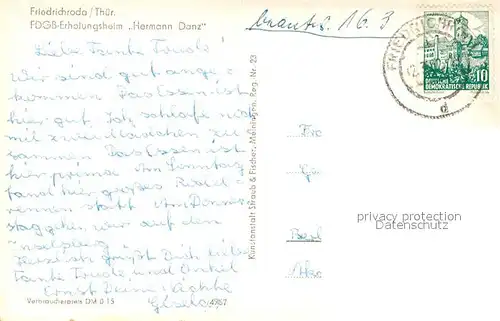 Friedrichroda / Thür.
FDGB-Erholungsheim „Hermann Danz"
beantw. 16. 3
Liebe Tante Trude!
Wir sind gut ange-
kommen. Das Essen ist
hier gut. Ich schlafe
mit zwei Mädchen zu
sammen. Das Essen ist
hier prima. Am Sonntag
fand hier großes Rodel
rennen statt. Am Donners
tag gehen wir auf den
Inselsberg.
Herzlich grüßt Dich liebe
Tante Trude und Onkel
Ernst Deine
Gisela
Verbraucherpreis DM 0 15
4761
Kunstanstalt Straub & Fischer, Meiningen, Reg. Nr. 23
FRIEDRICHRODA
d
10
DEUTSCHE
DEMOKRATISCHE REPUBLIK
privacy protection
Datenschutz